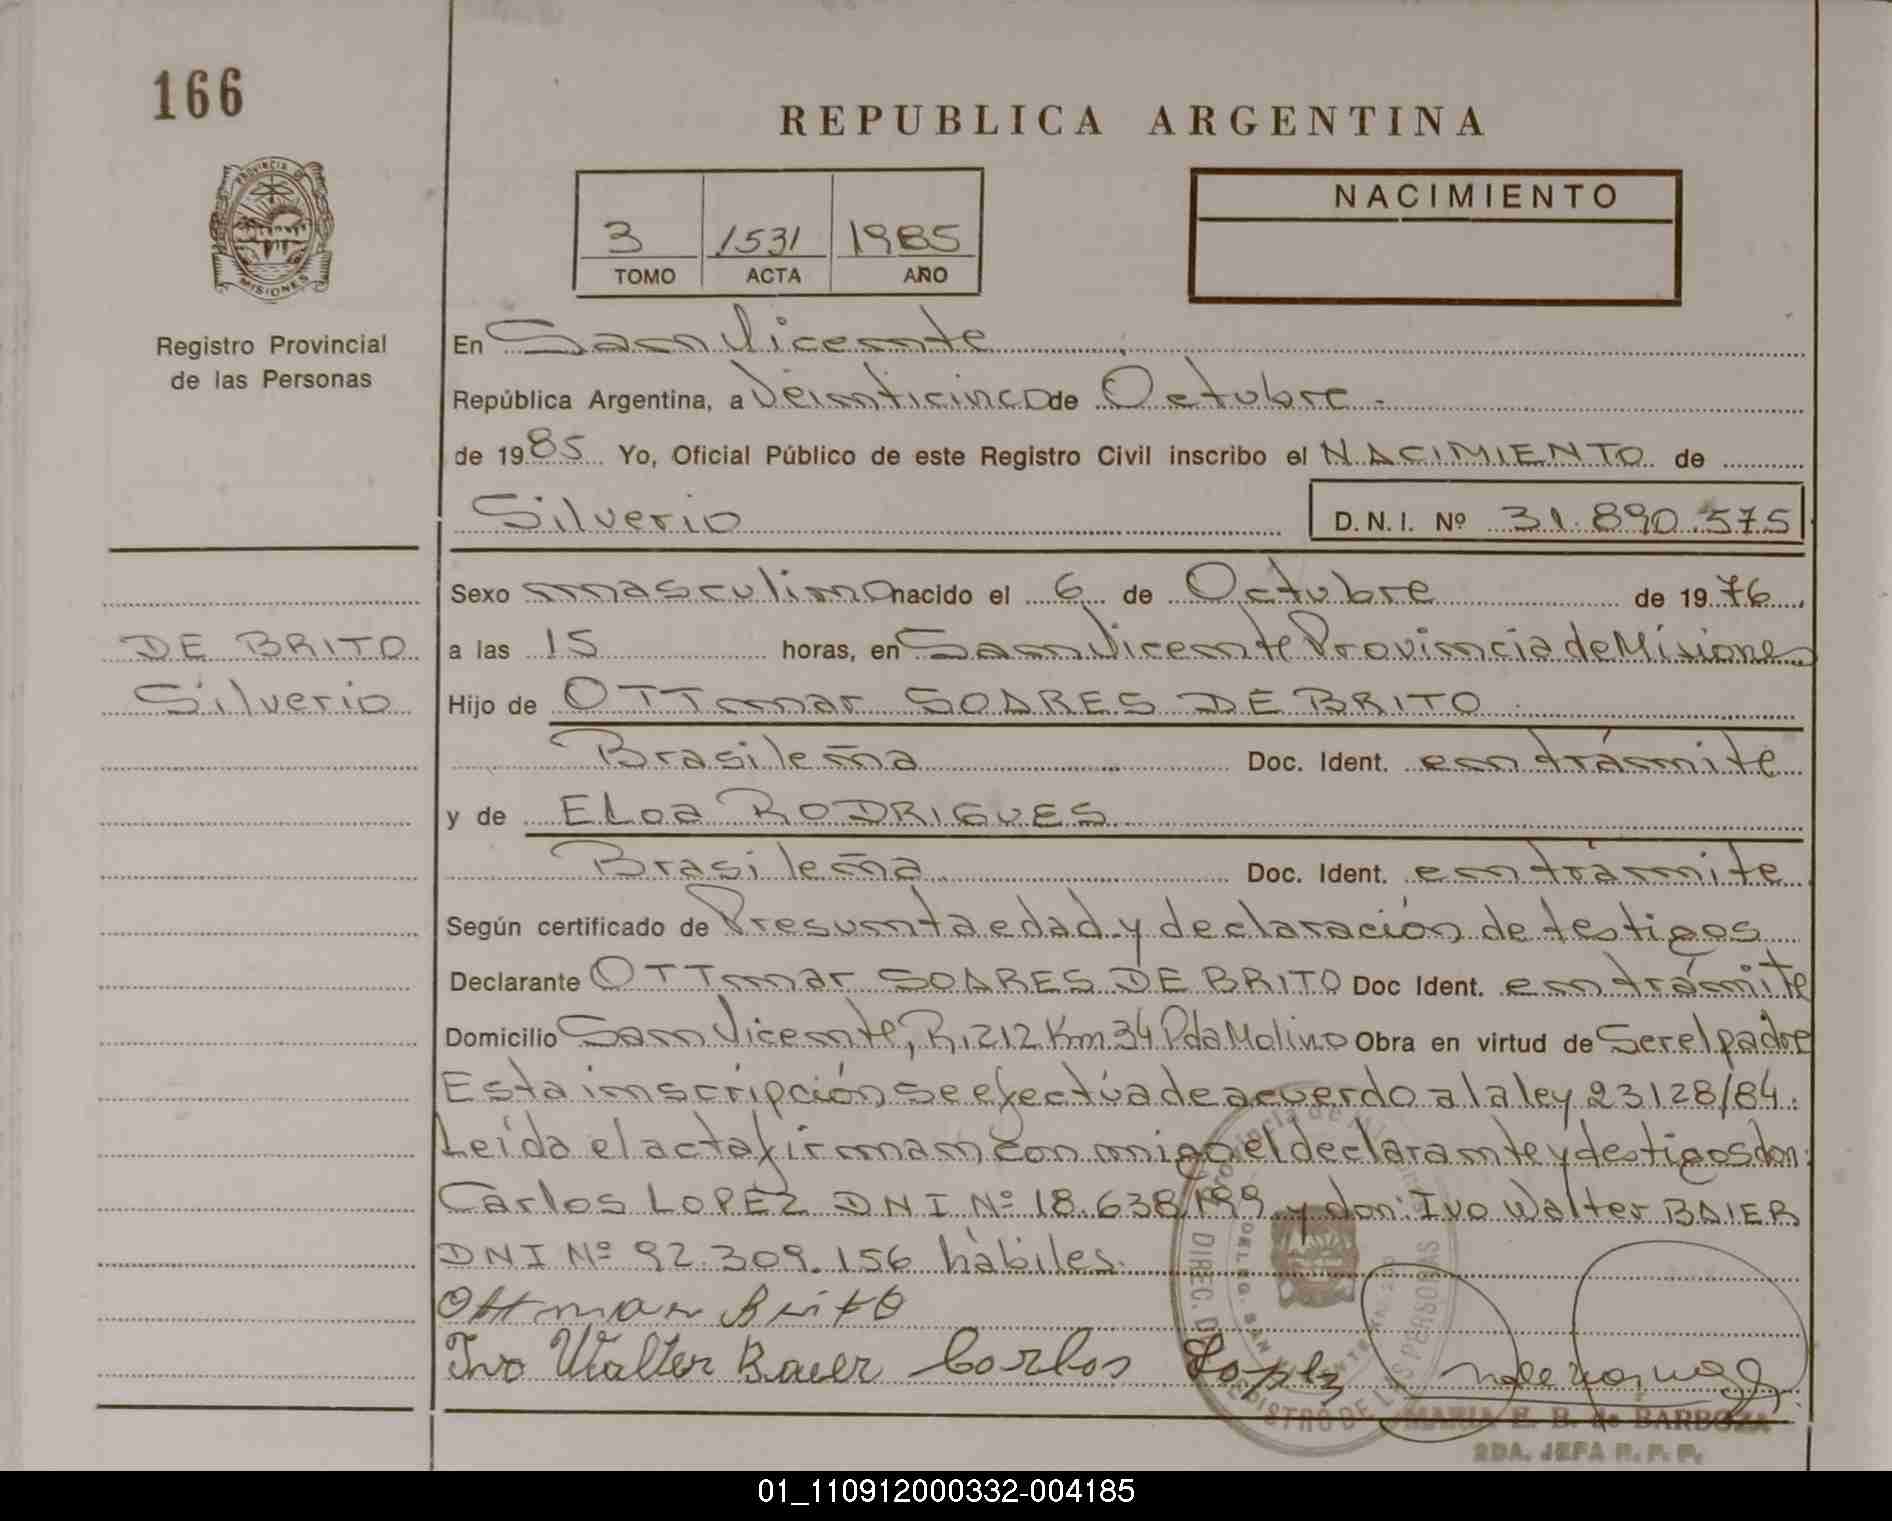 166
REPUBLICA ARGENTINA
PROVINCIA DE
MISIONES
3 1531 1985
TOMO ACTA AÑO
NACIMIENTO
Registro Provincial
de las Personas
En San Vicente
República Argentina, a Veinticinco de Octubre.
de 1985 Yo, Oficial Público de este Registro Civil inscribo el NACIMIENTO de
Silverio D.N.I. Nº 31.890.575
Sexo masculino nacido el 6 de Octubre de 1976
DE BRITO
Silverio
a las 15 horas, en San Vicente Provincia de Misiones
Hijo de OTTmar SOARES DE BRITO
Brasileña Doc. Ident. en trámite
y de ELOa RODRIGUES
Brasileña Doc. Ident. en trámite
Según certificado de Presunta edad y declaración de testigos
Declarante OTTmar SOARES DE BRITO Doc Ident. en trámite
Domicilio San Vicente, R. 212 Km 34 Pda Molino Obra en virtud de Ser el padre
Esta inscripción se efectúa de acuerdo a la ley 23128/84.
Leída el acta firman conmigo el declarante y testigos don:
Carlos LOPEZ DNI Nº 18.638.199 y don: Ivo Walter BAIER
DNI Nº 92.309.156 hábiles.
Ottmar Brito
Ivo Walter Baier Carlos Lopez
MARIA E. B. de BARBOZA
2DA. JEFA R. P. P.
01_110912000332-004185